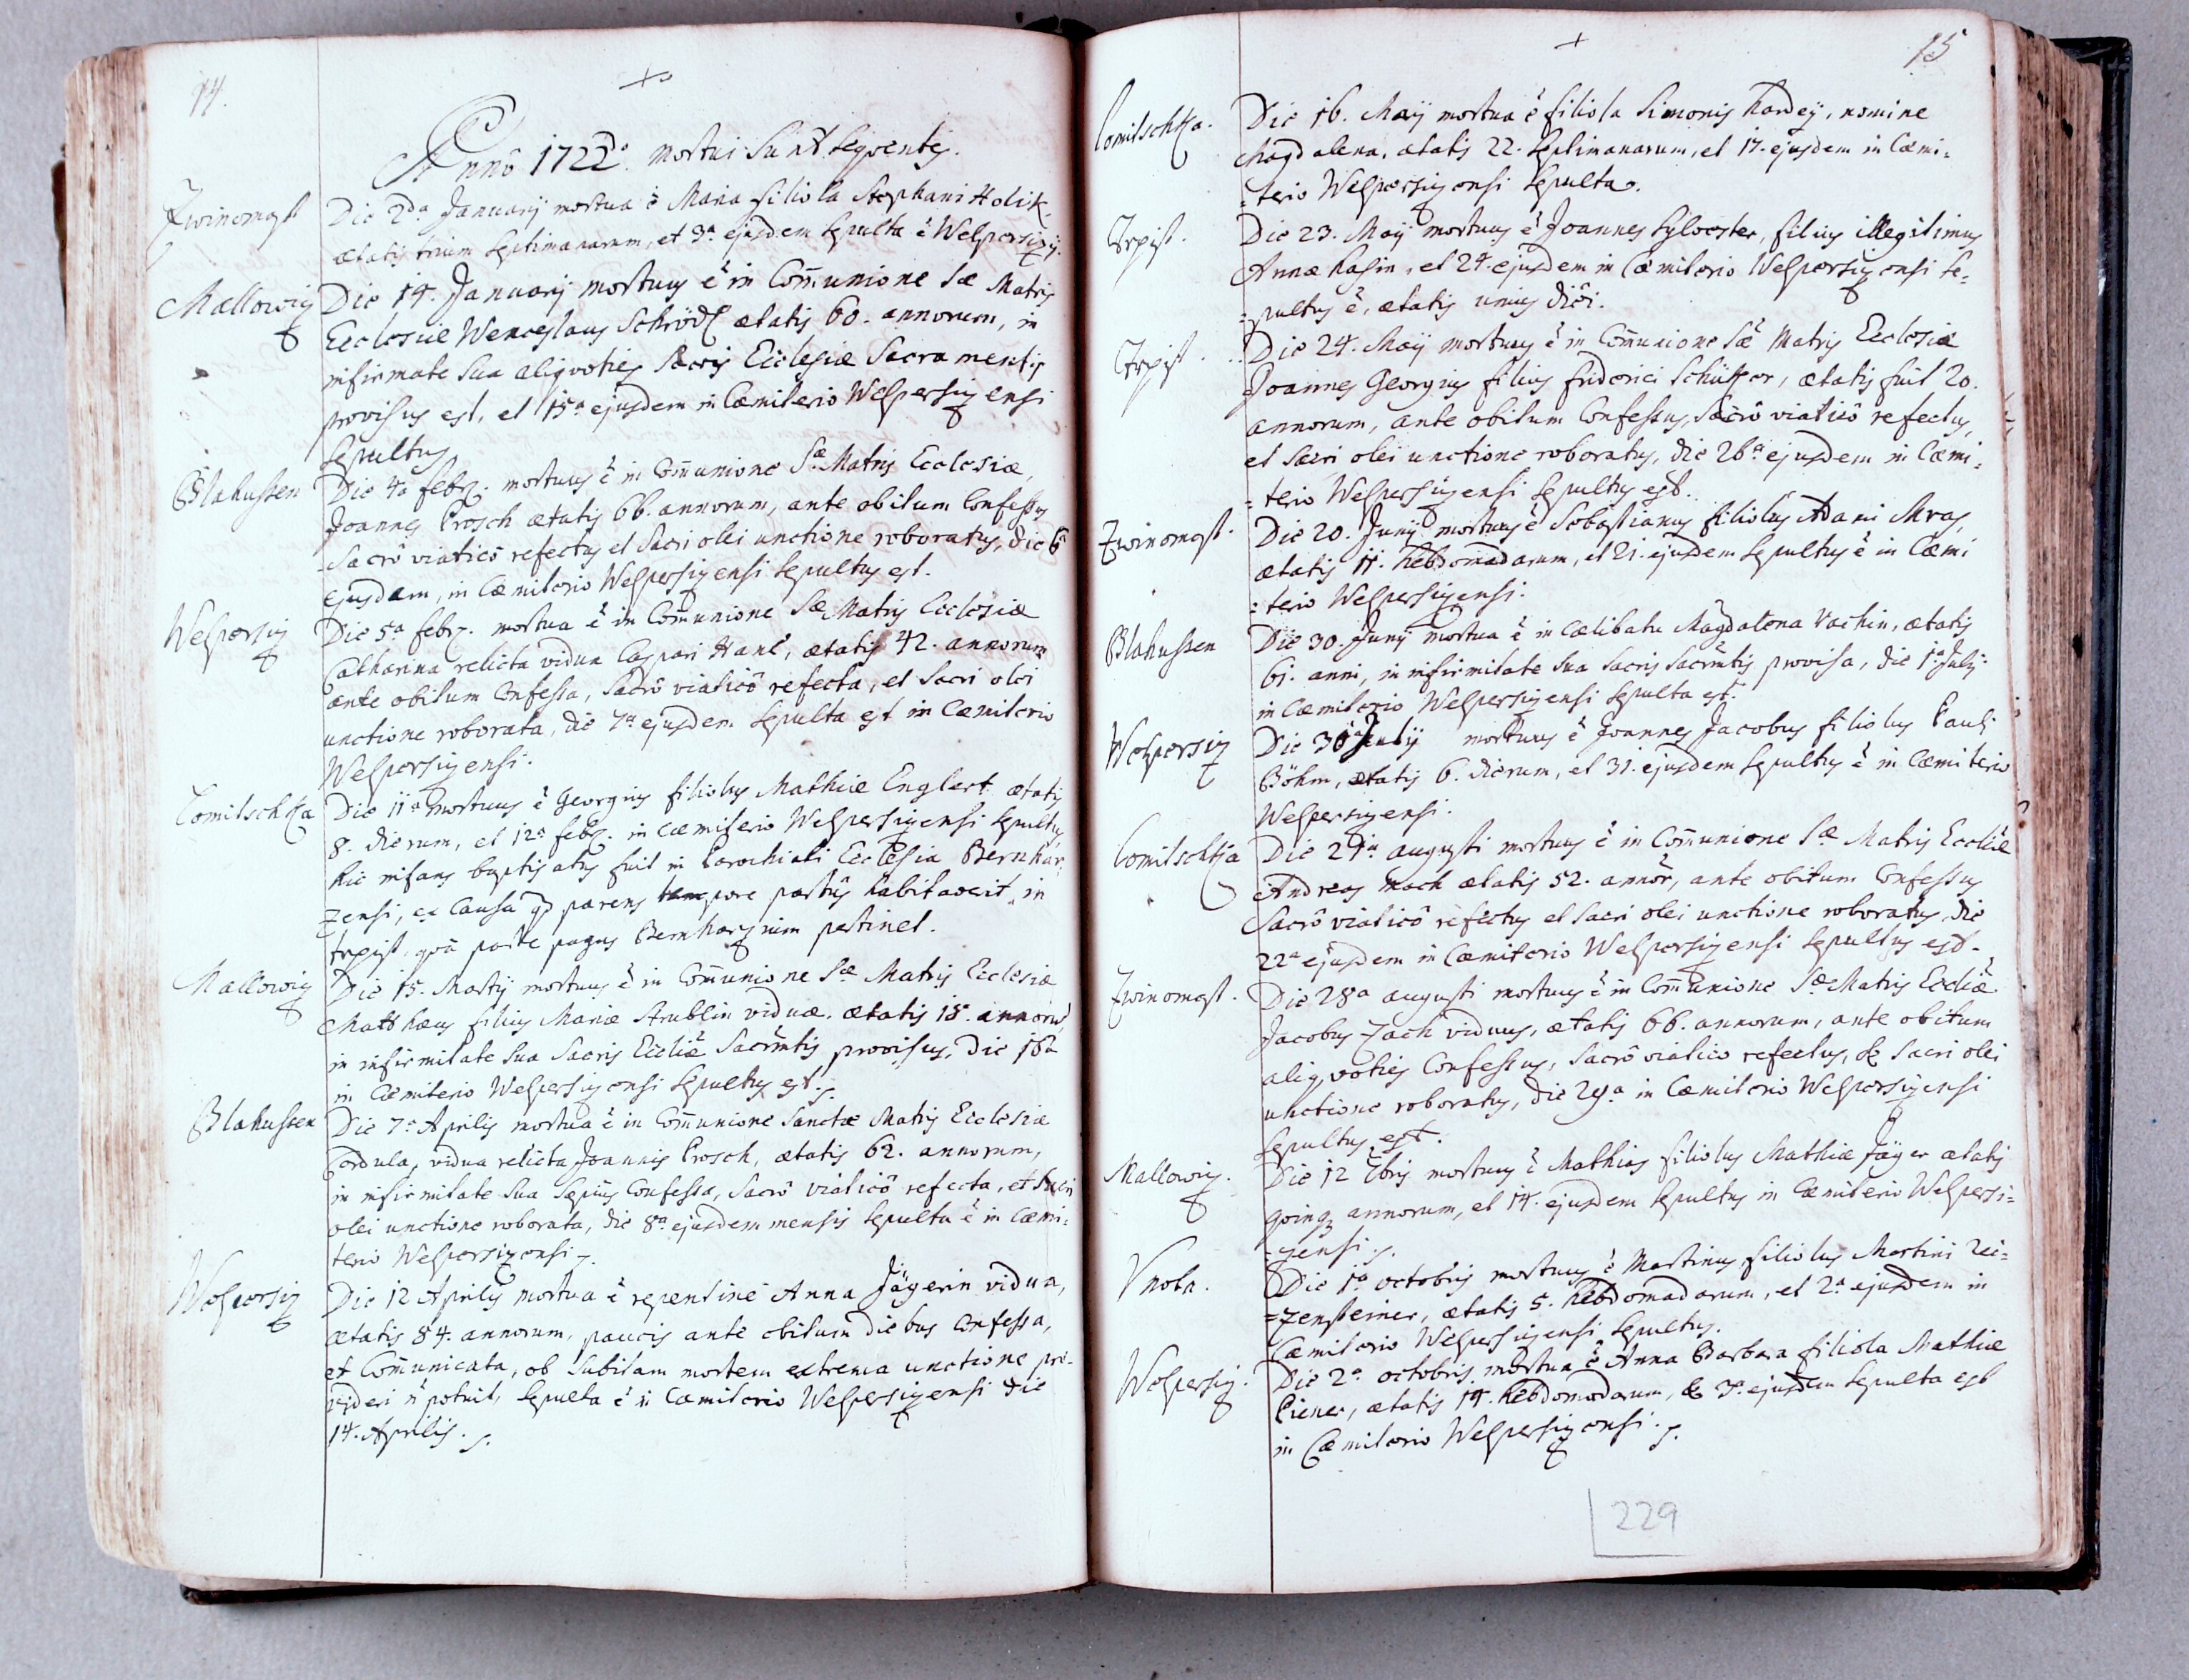 14.
Annô 1722do. mortui sunt seqventes.
Zwinomast
Die 2da Januarij mortua ẽ Maria filiola Stephani Holik
ætatis trium septimanarum, et 3a ejusdem sepulta ẽ Welpersizij.
Mallowiz
Die 14. Januarij mortuus ẽ in Com̃unione Sæ Matris
Ecclesiæ Wenceslaus Schrödl ætatis 60. annorum, in
infirmate sua aliqvoties sacris Ecclesiæ Sacramentis
provisus est, et 15a ejusdem in Cæmiterio Welpersizensi
sepultus
Blahussen
Die 4a febr. mortuus ẽ in Com̃unione Sæ Matris Ecclesiæ
Joannes Prosch ætatis 66. annorum, ante obitum Confessus
Sacrô viaticô refectus et Sacri olei unctione roboratus, die 6a
ejusdem, in Cæmiterio Welpersizensi sepultus est.
Welpersiz
Die 5a febr. mortua ẽ in Com̃unione Sæ Matris Ecclesiæ
Catharina relicta vidua Caspari Hanl, ætatis 42. annorum
ante obitum Confessa, Sacrô viaticô refecta, et Sacri olei
unctione roborata, die 7a ejusdem sepulta est in Cæmiterio
Welpersizensi.
Comitschka
Die 11a mortuus ẽ Georgius filiolus Mathiæ Englert ætatis
8. dierum, et 12a febr. in Cæmiterio Welpersizensi sepultus,
hic infans baptisatus fuit in Parochiali Ecclesia Bernhar-
zensi, ex Causa qd parens tempore partûs habitaverit in
trpist, qvâ parte pagus Bernharzium pertinet.
Mallowiz
Die 15. Martij mortuus ẽ in Com̃unione Sæ Matris Ecclesiæ
Matthæus filius Mariæ Strublin viduæ. ætatis 18. annorũ,
in infirmitate sua Sacris Ecc̃liæ Sacrm̃tis provisus, die 16a
in Cæmiterio Welpersizensi sepultus est.
Blahussen
Die 7a Aprilis mortua ẽ in Com̃unione Sanctæ Matris Ecclesiæ
Cordula, vidua relicta Joannis Prosch, ætatis 62. annorum,
in infirmitate sua sæpiùs Confessa, Sacrô viaticô refecta, et Sacri
olei unctione roborata, die 8a ejusdem mensis sepulta ẽ in Cæmi-
terio Welpersizensi.
Welpersiz
Die 12 Aprilis mortua ẽ repentinè Anna Jägerin vidua,
ætatis 84. annorum, paucis ante obitum diebus Confessa,
et Com̃unicata, ob subitam mortem extrema unctione pro-
videri ñ potuit, sepulta ẽ in Cæmiterio Welpersizensi die
14. Aprilis.
15
Comitschka.
Die 16. Maij mortua ẽ filiola Simonis Hardey, nomine
Magdalena, ætatis 22. septimanarum, et 17. ejusdem in Cæmi-
-terio Welpersizensi sepulta.
Trpist.
Die 23. Maij mortuus ẽ Joannes Sylvester, filius illegitimus
Annæ Kasin, et 24. ejusdem in Cæmiterio Welpersizensi se-
-pultus ẽ, ætatis unius diei.
Trpist.
Die 24. Maij mortuus ẽ in Com̃unione Sæ Matris Ecclesiæ
Joannes Georgius filius friderici Schützer, ætatis fuit 20.
annorum, ante obitum Confessus, Sacrô viaticô refectus,
et Sacri olei unctione roboratus, die 26a ejusdem in Cæmi-
-terio Welpersizensi sepultus est.
Zwinomast.
Die 20. Junij mortuus ẽ Sebastianus filiolus Adami Mras,
ætatis 11. hebdomadarum, et 21. ejusdem sepultus ẽ in Cæmi
-terio Welpersizensi.
Blahussen
Die 30. Junij mortua ẽ in cælibatu Magdalena Vachin, ætatis
61. anni, in infirmitate sua Sacris Sacrm̃tis provisa, die 1a Julij
in Cæmiterio Welpersizensi sepulta est.
Welpersiz
Die 30 Julij mortuus ẽ Joannes Jacobus filiolus Pauli
Böhm, ætatis 6. dierum, et 31. ejusdem sepultus ẽ in Cæmiterio
Welpersizensi.
Comitschka
Die 21a augusti mortuus ẽ in Com̃unione Sæ Matris Eccliæ
Andreas Mach ætatis 52. annõr, ante obitum Confessus
Sacrô viaticô refectus et Sacri olei unctione roboratus, die
22a ejusdem in Cæmiterio Welpersizensi sepultus est.
Zwinomast.
Die 28a augusti mortuus ẽ in Com̃unione Sæ Matris Eccliæ
Jacobus Zach viduus, ætatis 66. annorum, ante obitum
aliqvoties Confessus, Sacrô viatico refectus, & Sacri olei
unctione roboratus, die 29a in Cæmiterio Welpersizensi
sepultus est.
Mallowiz.
Die 12 7bris mortuus ẽ Mathias filiolus Mathiæ Jäger ætatis
qvinqz annorum, et 14. ejusdem sepultus in Cæmiterio Welpersi-
-zensi.
Vnola.
Die 1a octobris mortuus ẽ Martinus filiolus Martini Rei-
-zensteiner, ætatis 5. hebdomadarum, et 2a ejusdem in
Cæmiterio Welpersizensi sepultus.
Welpersiz.
Die 2a octobris mortua ẽ Anna Barbara filiola Mathiæ
Piener, ætatis 14. hebdomadarum, & 3a ejusdem sepulta est
in Cæmiterio Welpersizensi.
229